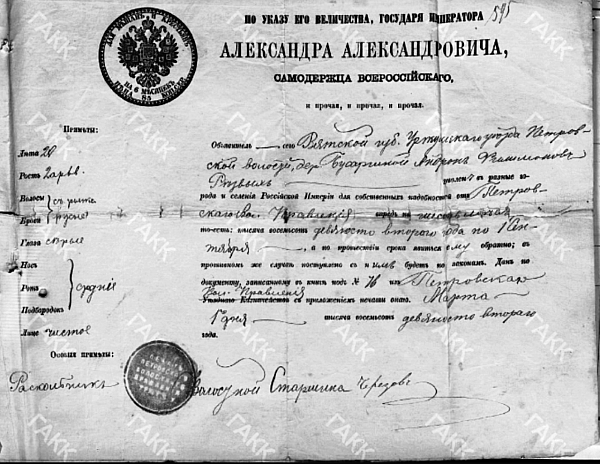 ПО УКАЗУ ЕГО ВЕЛИЧЕСТВА, ГОСУДАРЯ ИМПЕРАТОРА
595
АЛЕКСАНДРА АЛЕКСАНДРОВИЧА,
САМОДЕРЖЦА ВСЕРОССІЙСКАГО,
и прочая, и прочая, и прочая.
НА 6 МѢСЯЦЕВЪ
85
Примѣты:
Лѣта 20
Ростъ 2 арш.
Волосы
Брови русые
Глаза сѣрые
Носъ
Ротъ средній
Подбородокъ
Лице чистое
Особыя примѣты:
Раскольникъ
Объявитель сего Вятской губ. Уржумскаго уѣзда Петров-
ской волости, дер.
уволенъ въ разные го-
рода и селенія Россійской Имперіи для собственныхъ надобностей отъ Петров-
скаго Вол. Правленія впредь на шесть мѣсяцевъ
то-есть: тысяча восемьсотъ девяносто втораго года по 1 Сен-
тября а по прошествіи срока явиться ему обратно; въ
противномъ же случаѣ поступлено съ нимъ будетъ по законамъ. Данъ по
документу, записанному въ книгѣ подъ № 76 изъ Петровскаго
Вол. Правленія
съ приложеніемъ печати онаго. Марта
1 дня тысяча восемьсотъ девяносто втораго
года.
Волостной Старшина
ГАКК